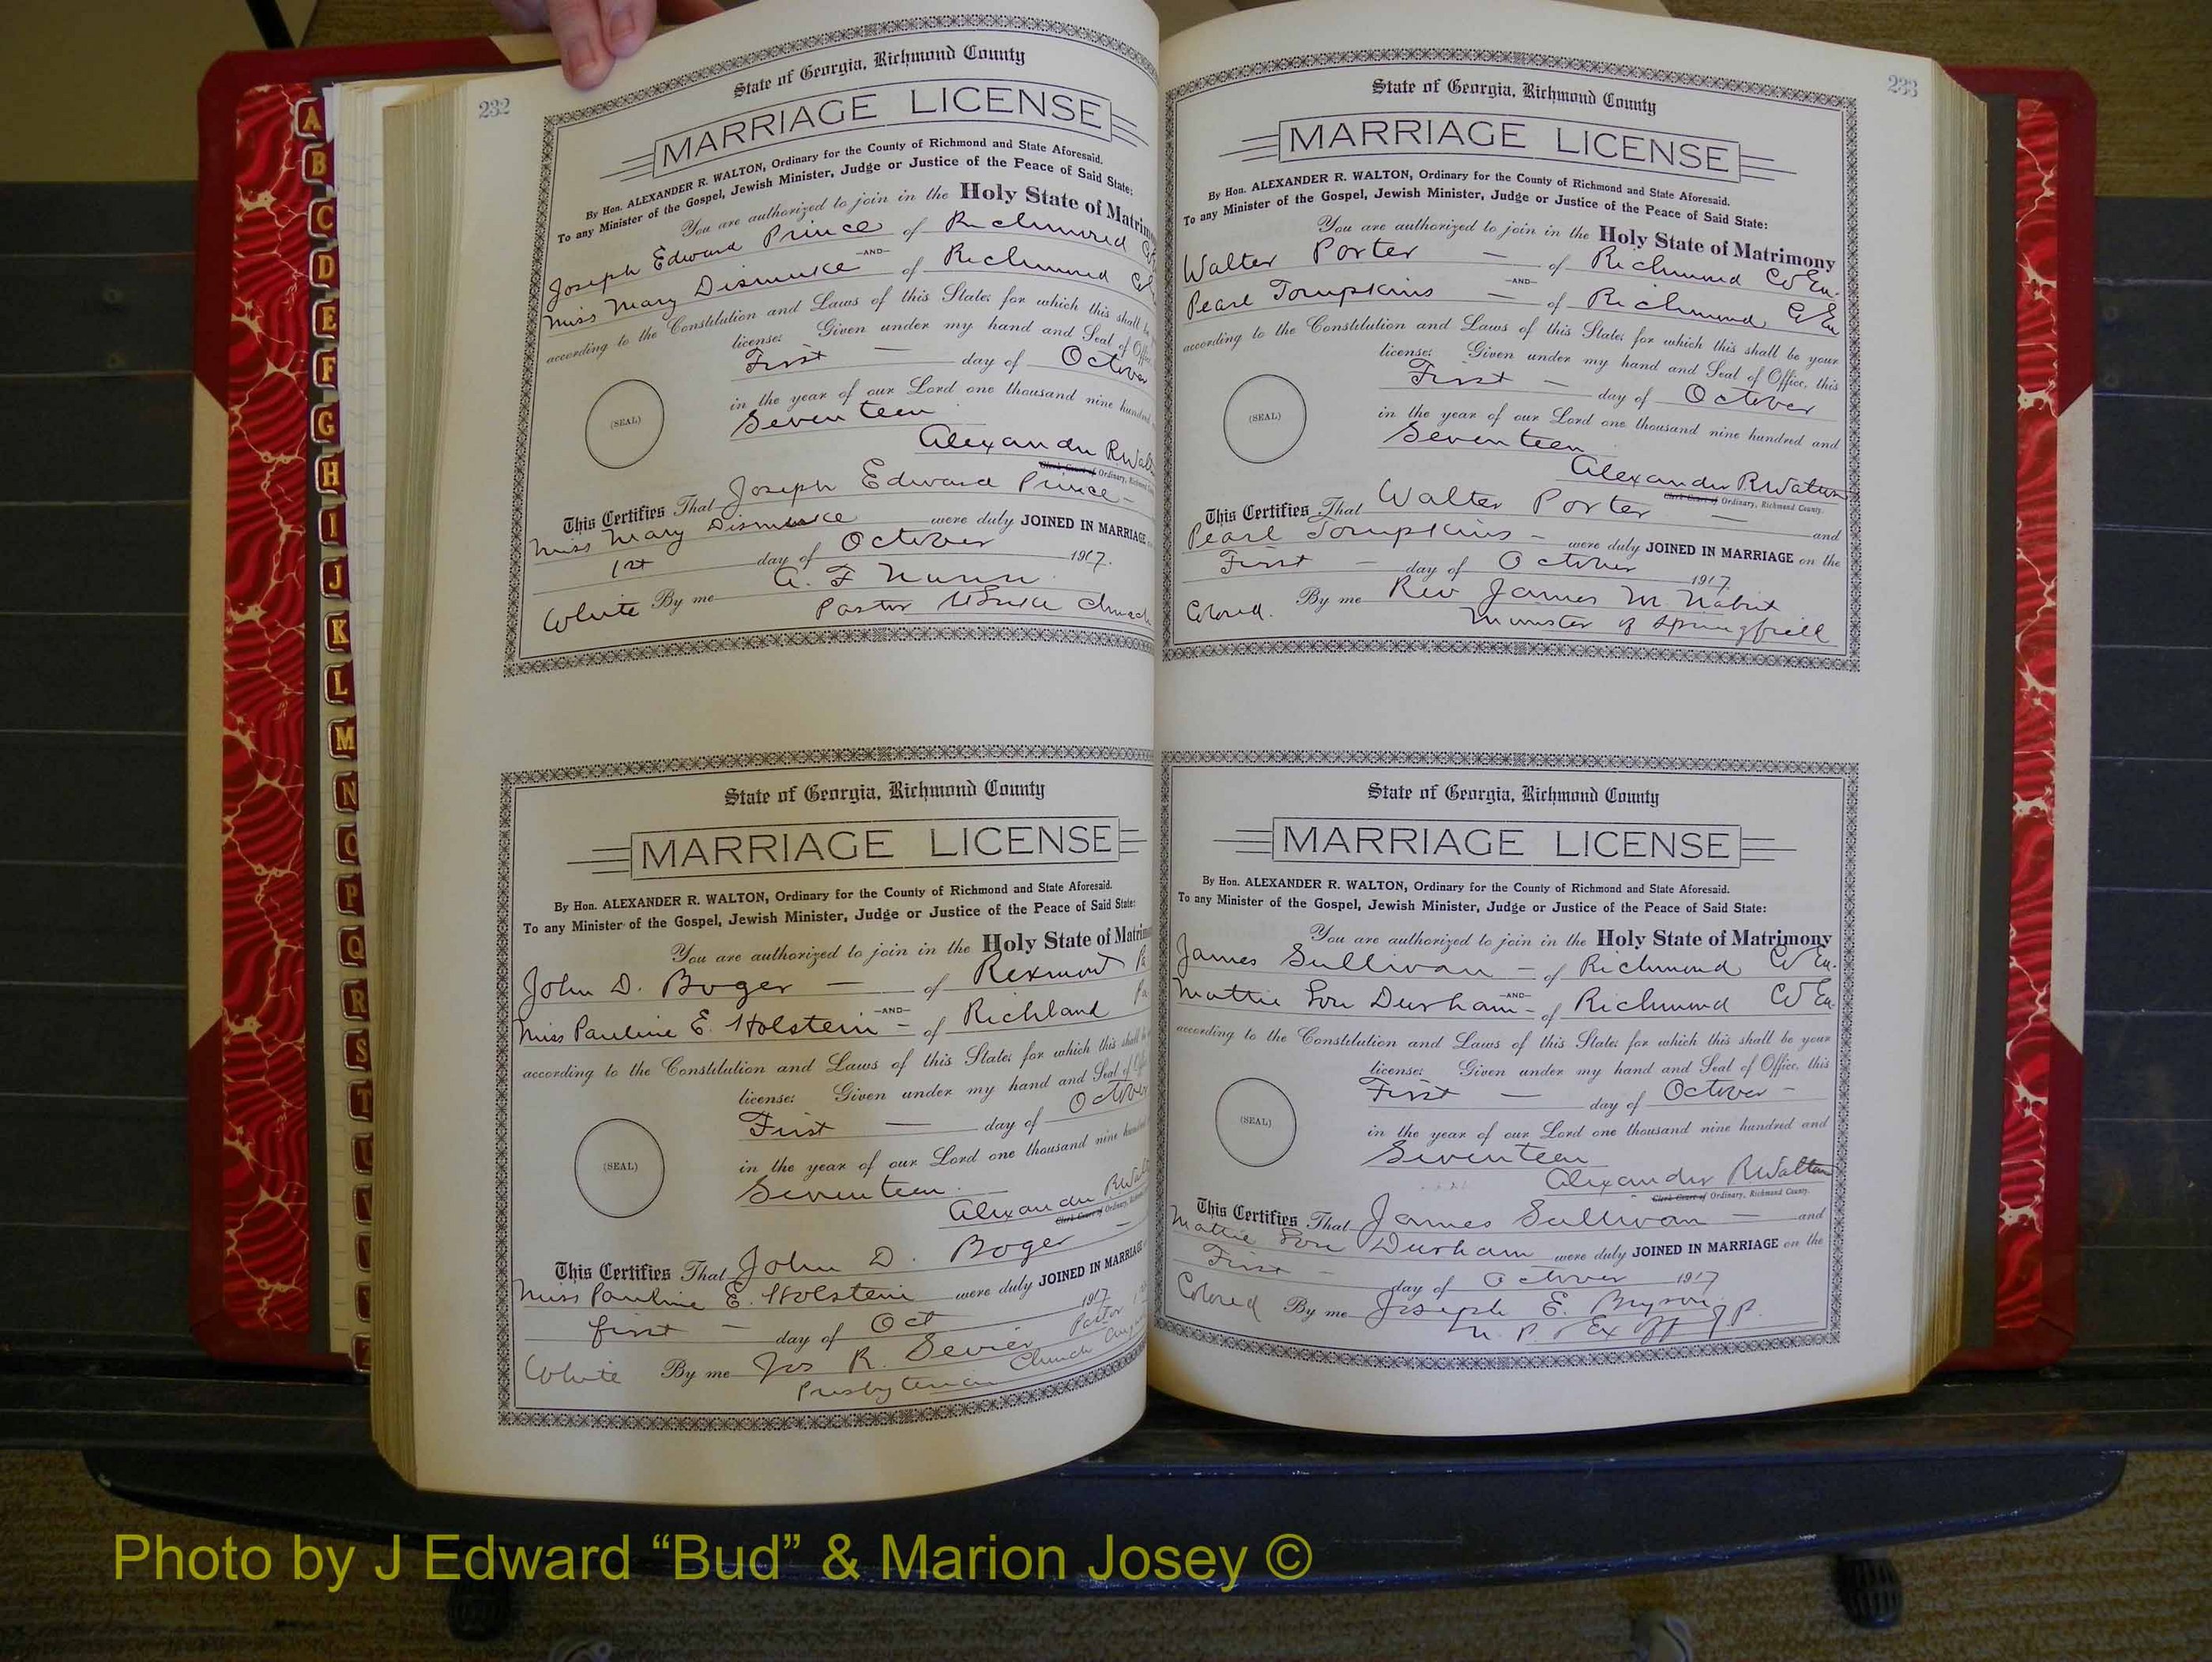 232
State of Georgia, Richmond County
MARRIAGE LICENSE
By Hon. ALEXANDER R. WALTON, Ordinary for the County of Richmond and State Aforesaid.
To any Minister of the Gospel, Jewish Minister, Judge or Justice of the Peace of Said State:
You are authorized to join in the Holy State of Matrimo
Joseph Edward Prince of Richmond
-AND-
Miss Mary Dismuke of Richmond
according to the Constitution and Laws of this State; for which this shall
license: Given under my hand and Seal of
First — day of October
(SEAL)
in the year of our Lord one thousand nine hundred
Seventeen
Alexander R Walt
Clerk Court of Ordinary, Richmond
This Certifies That Joseph Edward Prince -
Miss Mary Dismuke were duly JOINED IN MARRIAGE
1st day of October 1917.
White By me A. F Nunn
Pastor Church
State of Georgia, Richmond County
MARRIAGE LICENSE
By Hon. ALEXANDER R. WALTON, Ordinary for the County of Richmond and State Aforesaid.
To any Minister of the Gospel, Jewish Minister, Judge or Justice of the Peace of Said State:
You are authorized to join in the Holy State of Matrim
John D. Boger — of Rexmont Pa
-AND-
Miss Pauline E. Holstein - of Richland Pa
according to the Constitution and Laws of this State; for which this shall
license: Given under my hand and Seal of
First — day of October
(SEAL)
in the year of our Lord one thousand nine
Seventeen
Alexander R Wal
Clerk Court of Ordinary, Richmond
This Certifies That John D. Boger —
Miss Pauline E. Holstein were duly JOINED IN MARRIAGE
first - day of Oct 1917
White By me Jos R. Sevier Pastor
Presbyterian Church
233
State of Georgia, Richmond County
MARRIAGE LICENSE
By Hon. ALEXANDER R. WALTON, Ordinary for the County of Richmond and State Aforesaid.
To any Minister of the Gospel, Jewish Minister, Judge or Justice of the Peace of Said State:
You are authorized to join in the Holy State of Matrimony
Walter Porter — of Richmond Co Ga.
-AND-
Pearl Tompkins — of Richmond Co Ga
according to the Constitution and Laws of this State; for which this shall be your
license: Given under my hand and Seal of Office, this
First — day of October
(SEAL)
in the year of our Lord one thousand nine hundred and
Seventeen
Alexander R Walton
Clerk Court of Ordinary, Richmond County.
This Certifies That Walter Porter — and
Pearl Tompkins - were duly JOINED IN MARRIAGE on the
First - day of October 1917
Colored. By me Rev James M. Nabrit
Minister of Springfiell
State of Georgia, Richmond County
MARRIAGE LICENSE
By Hon. ALEXANDER R. WALTON, Ordinary for the County of Richmond and State Aforesaid.
To any Minister of the Gospel, Jewish Minister, Judge or Justice of the Peace of Said State:
You are authorized to join in the Holy State of Matrimony
James Sullivan - of Richmond Co Ga.
-AND-
Mattie Lou Durham - of Richmond Co Ga
according to the Constitution and Laws of this State; for which this shall be your
license: Given under my hand and Seal of Office, this
First — day of October -
(SEAL)
in the year of our Lord one thousand nine hundred and
Seventeen
Alexander R Walton
Clerk Court of Ordinary, Richmond County.
This Certifies That James Sullivan — and
Mattie Lou Durham were duly JOINED IN MARRIAGE on the
First - day of October 1917
Colored By me Joseph E. Bryson J P.
N. P. & Ex Off
A
B
C
D
E
F
G
H
I
J
K
L
M
N
O
P
Q
R
S
T
Photo by J Edward “Bud” & Marion Josey ©